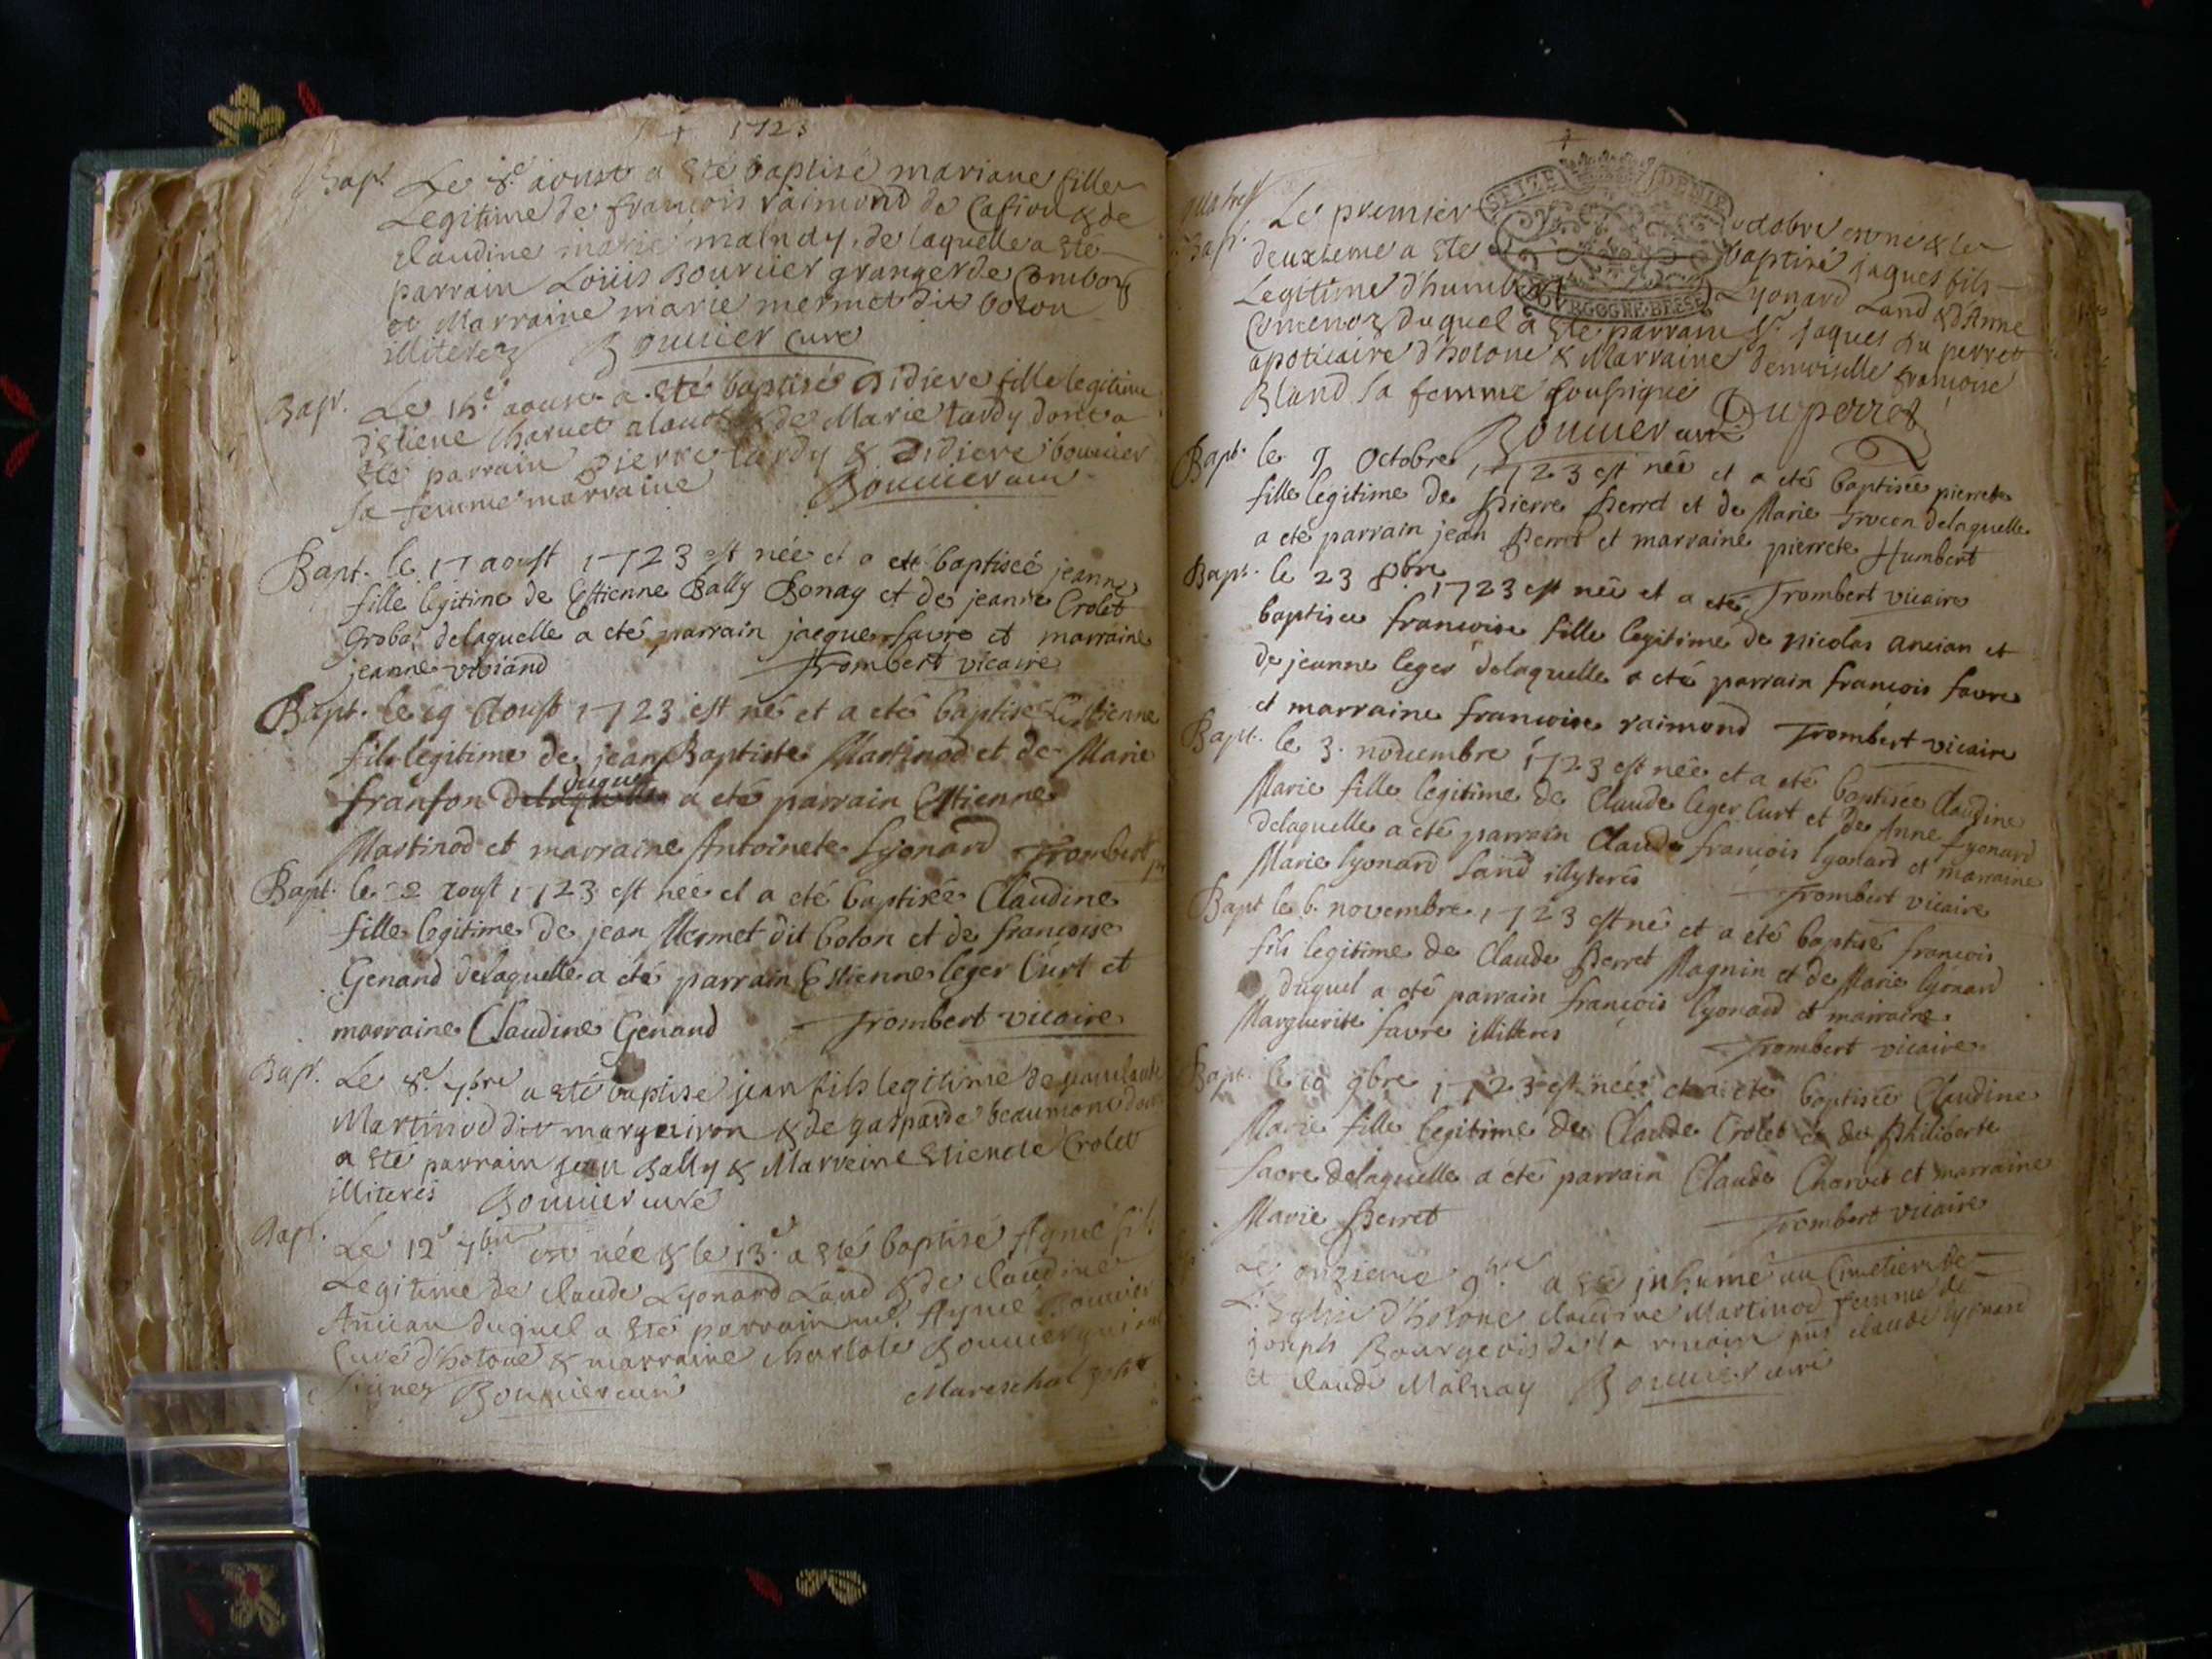 1723
Bap. Le 8e aoust a esté baptisé mariane fille
Legitime de françois raimond de & de
claudine marie malnay, de laquelle a esté
parrain Loüis Bouvier granger de
et Marraine marie mermet dit bolon
illiterez Bouvier curé
Bap. Le aoust a esté baptisé Didiere fille legitime
d'etiene charvet & de Marie tardy dont a
esté parrain pierre tardy & Didiere bouvier
sa femme marraine Bouvier curé
Bapt. le 17 aoust 1723 est née et a eté baptisée jeanne
fille legitime de Estienne Bally Bonay et de jeanne Crolet
Grobas delaquelle a eté parrain jacque favre et marraine
jeanne viviand Trombert vicaire
Bapt. le 19 Aoust 1723 est né et a eté baptisé Estienne
fils legitime de jean Baptiste Martinod et de Marie
franson duquel a eté parrain Estienne
Martinod et marraine Antoinete Lyonard Trombert
Bapt. le aoust 1723 est née et a eté baptisée Claudine
fille legitime de jean Mermet dit bolon et de francoise
Genand delaquelle a eté parrain Estienne leger Curt et
marraine Claudine Genand Trombert vicaire
Bap. Le 8e 7bre a esté baptisé jean fils legitime de
Martinod dit marguiron & de gasparde beaumont dont
a esté parrain jean Bally & Marreine Crolet
illiterés Bouvier curé
Bap. Le 12e 7bre est née & le 13e a esté baptisé Aymé fils
Legitime de claude Lyonard Land & de claudine
Ancian duquel a esté parrain me Aymé Bouvier
Curé d'hotone & marraine charlote Bouvier qui ont
signez Bouvier curé Mareschal
Bap. Le premier octobre est né & le
deuxieme a esté baptisé jaques fils
Legitime d'humbert Lyonard Land & d'Anne
duquel a esté parrain Sr. jaques du perret
apoticaire d'hotone & Marraine demoiselle françoise
Bland sa femme soussignés Duperret
Bouvier curé
Bapt. le 9 Octobre 1723 est née et a eté baptisée pierrete
fille legitime de Pierre Perret et de Marie delaquelle
a eté parrain jean Perret et marraine pierrete Humbert
Trombert vicaire
Bapt. le 23 8bre 1723 est née et a eté
baptisée francoise fille legitime de nicolas ancian et
de jeanne leger delaquelle a eté parrain françois favre
et marraine francoise raimond Trombert vicaire
Bapt. le 3. novembre 1723 est née et a eté baptisée Claudine
Marie fille legitime de Claude leger Curt et de Anne Lyonard
delaquelle a eté parrain Claude françois lyonard et marraine
Marie lyonard Land illyterés Trombert vicaire
Bapt le 6. novembre 1723 est né et a eté baptisé françois
fils legitime de Claude Perret Magnin et de Marie lyonard
duquel a eté parrain françois lyonard et marraine
Marguerite favre illitteres Trombert vicaire
Bapt. le 10 9bre 1723 est née et a eté baptisée Claudine
Marie fille legitime de Claude Crolet et de Philiberte
favre delaquelle a eté parrain Claude Charvet et marraine
Marie Perret Trombert vicaire
Le onzieme 9bre a esté inhumé au Cimetiere de
L'Eglise d'hotone claudine Martinod femme de
joseph Bourgeois claude lyonard
et claude Malnay Bouvier curé
SEIZE DENIE
BOVRGOGNE·BRESSE